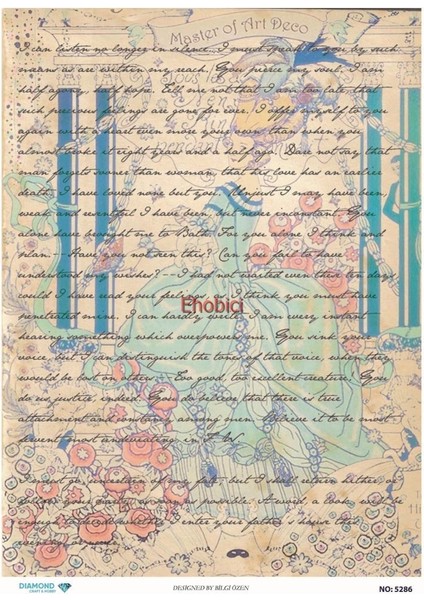 Master of Art Deco
I can listen no longer in silence. I must speak to you by such
means as are within my reach. You pierce my soul. I am
half agony, half hope. Tell me not that I am too late, that
such precious feelings are gone for ever. I offer myself to you
again with a heart even more your own than when you
almost broke it eight years and a half ago. Dare not say that
man forgets sooner than woman, that his love has an earlier
death. I have loved none but you. Unjust I may have been,
weak and resentful I have been, but never inconstant. You
alone have brought me to Bath. For you alone I think and
plan. - Have you not seen this? Can you fail to have
understood my wishes? -- I had not waited even these ten days,
could I have read your feelings, as I think you must have
penetrated mine. I can hardly write. I am every instant
hearing something which overpowers me. You sink your
voice, but I can distinguish the tones of that voice, when they
would be lost on others. - Too good, too excellent creature! You
do us justice, indeed. You do believe that there is true
attachment and constancy among men. Believe it to be most
fervent, most undeviating in F. W.
I must go, uncertain of my fate; but I shall return hither, or
follow your party, as soon as possible. A word, a look will be
enough to decide whether I enter your father's house this
evening or never.
Ehobici
DIAMOND
CRAFT & HOBBY
DESIGNED BY BİLGİ ÖZEN
NO: 5286